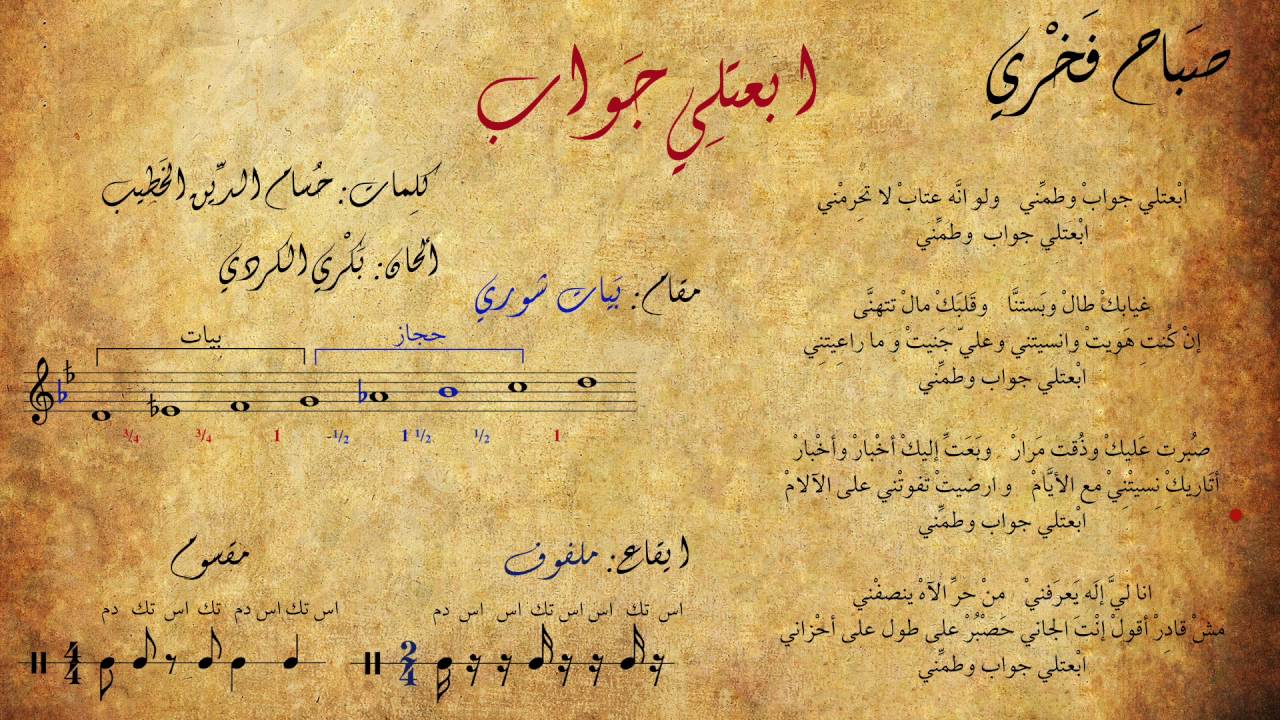 صَبَاح فَخْري
ابعتلِي جَواب
كلِمات: حُسام الدِّين الخَطِيب
ألحان: بَكْري الكردي
مقام: بَيات شوري
بيات
حجاز
3/4 3/4 1 -1/2 1 1/2 1/2 1
ايقاع: ملفوف
مقسوم
اس تك اس اس تك اس اس دم
2/4
اس تك اس دم تك اس تك دم
4/4
ابْعتلي جوابْ وطمِّني ولو انَّه عتابْ لا تحْرِمْني
ابْعَتلي جواب وطمِّني
غيابكْ طالْ وبَستنَّا وقَلبَكْ مالْ تتهنَّى
إنْ كُنتِ هويتْ وانسيتني وعليّ جَنيتْ و ما راعِيتنِي
ابْعتلي جواب وطمِّني
صُبرت عَليكْ وذُقت مَرارْ وبَعَتِّ إليكْ أخْبارْ وأخْبارْ
أتَاريكْ نِسيتْنِيْ مع الأيَّامْ و ارضيتْ تفوتْني على الآلامْ
ابْعتلي جواب وطمِّني
انا ليَّ إلَه يَعرَفنيْ منْ حرِّ الآهْ ينصفْني
مشْ قادِرْ أقولْ إنْتَ الجاني حَصْبُرْ على طول على أحْزاني
ابْعتلي جواب وطمِّني